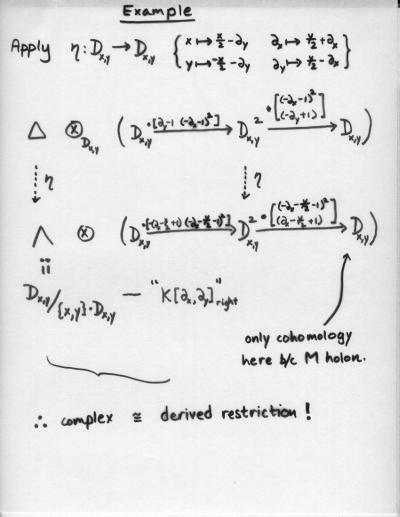 Example
Apply η: D_{x,y} → D_{x,y} { x ↦ x/2 - ∂_y ∂_x ↦ y/2 + ∂_x
y ↦ -x/2 - ∂_y ∂_y ↦ x/2 - ∂_x }
△ ⊗_{D_{x,y}} ( D_{x,y} —·[∂_y-1 (-∂_x-1)²]→ D_{x,y}² —·[(-∂_x-1)² (-∂_y+1)]→ D_{x,y} )
η η
∧ ⊗ ( D_{x,y} → D_{x,y}² → D_{x,y} )
D_{x,y}/{x,y}·D_{x,y} — "K[∂_x,∂_y]"_{right}
only cohomology
here b/c M holon.
∴ complex ≅ derived restriction !